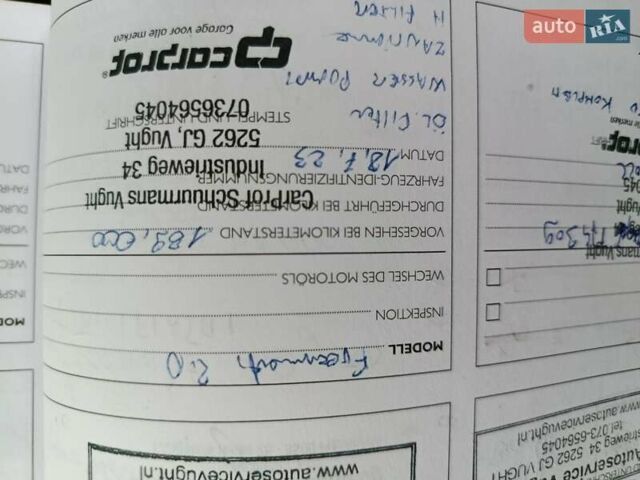 auto RIA.com
MODELL Freemont 2.0
INSPEKTION
WECHSEL DES MOTORÖLS
VORGESEHEN BEI KILOMETERSTAND 189,000
DURCHGEFÜHRT BEI KILOMETERSTAND
CarProf Schuurmans Vught
FAHRZEUG-IDENTIFIZIERUNGSNUMMER
Industrieweg 34
DATUM 18,7,23
5262 GJ, Vught
STEMPEL UND UNTERSCHRIFT
0736564045
ÖL. Filter
WASSER PUMPE
carprof®
Garage voor alle merken
www.autoservicevught.nl
MODE
INSPE
WEC
VORG
DURC
FAHR
DATU
mans Vught
Autoservice
34 5262 GJ VUGHT
tel.073-6564045
www.autoservicevught.nl